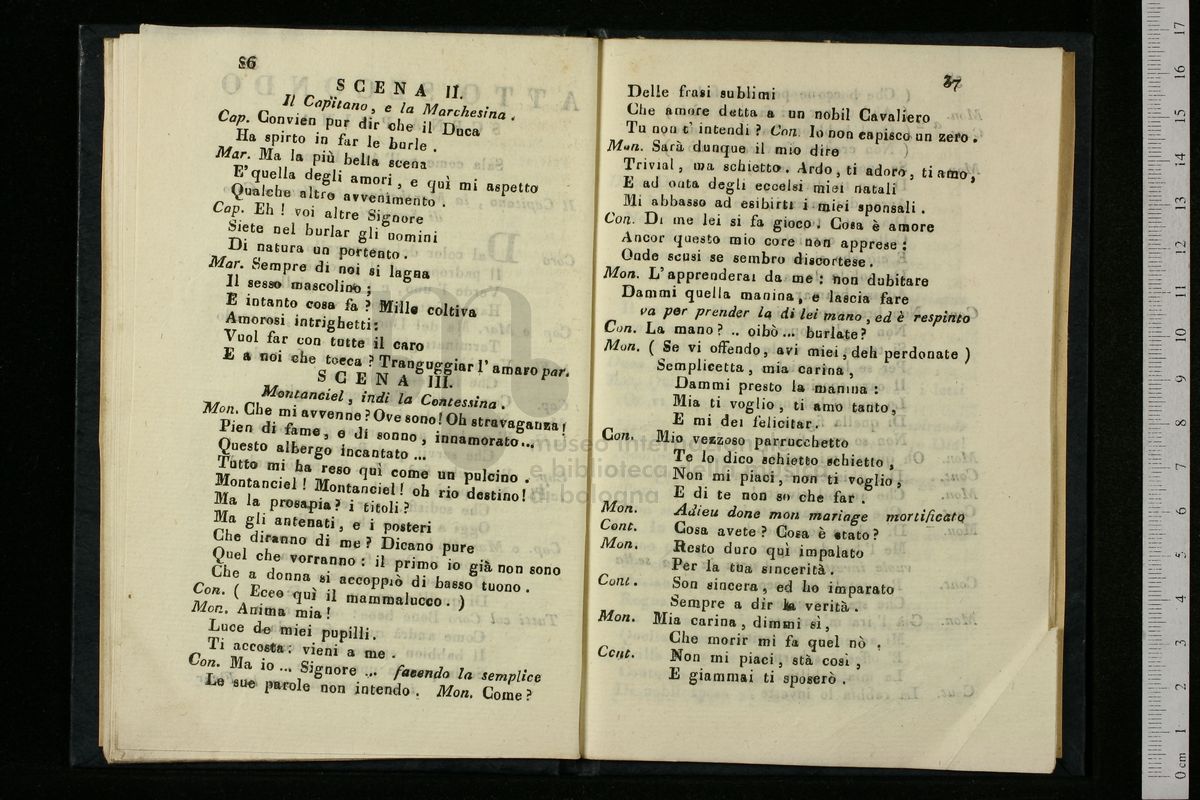 86
SCENA II.
Il Capitano, e la Marchesina.
Cap. Convien pur dir che il Duca
Ha spirto in far le burle.
Mar. Ma la più bella scena
E' quella degli amori, e quì mi aspetto
Qualche altro avvenimento.
Cap. Eh! voi altre Signore
Siete nel burlar gli uomini
Di natura un portento.
Mar. Sempre di noi si lagna
Il sesso mascolino;
E intanto cosa fa? Mille coltiva
Amorosi intrighetti:
Vuol far con tutte il caro
E a noi che tocca? Tranguggiar l'amaro par.
SCENA III.
Montanciel, indi la Contessina.
Mon. Che mi avvenne? Ove sono! Oh stravaganza!
Pien di fame, e di sonno, innamorato...
Questo albergo incantato ...
Tutto mi ha reso quì come un pulcino.
Montanciel! Montanciel! oh rio destino!
Ma la prosapia? i titoli?
Ma gli antenati, e i posteri
Che diranno di me? Dicano pure
Quel che vorranno: il primo io già non sono
Che a donna si accoppiò di basso tuono.
Con. ( Ecco quì il mammalucco. )
Mon. Anima mia!
Luce de miei pupilli.
Ti accosta: vieni a me.
Con. Ma io ... Signore ... facendo la semplice
Le sue parole non intendo. Mon. Come?
37
Delle frasi sublimi
Che amore detta a un nobil Cavaliero
Tu non t'intendi? Con. Io non capisco un zero.
Mon. Sarà dunque il mio dire
Trivial, ma schietto. Ardo, ti adoro, ti amo,
E ad onta degli eccelsi miei natali
Mi abbasso ad esibirti i miei sponsali.
Con. Di me lei si fa gioco. Cosa è amore
Ancor questo mio core non apprese:
Onde scusi se sembro discortese.
Mon. L'apprenderai da me: non dubitare
Dammi quella manina, e lascia fare
va per prender la di lei mano, ed è respinto
Con. La mano? .. oibò ... burlate?
Mon. ( Se vi offendo, avi miei, deh perdonate )
Semplicetta, mia carina,
Dammi presto la manina:
Mia ti voglio, ti amo tanto,
E mi dei felicitar.
Con. Mio vezzoso parrucchetto
Te lo dico schietto schietto,
Non mi piaci, non ti voglio,
E di te non so che far.
Mon. Adieu done mon mariage mortificato
Cont. Cosa avete? Cosa è stato?
Mon. Resto duro quì impalato
Per la tua sincerità.
Cont. Son sincera, ed ho imparato
Sempre a dir la verità.
Mon. Mia carina, dimmi sì,
Che morir mi fa quel nò.
Cont. Non mi piaci, stà così,
E giammai ti sposerò.
museo internazionale
e biblioteca della musica
di bologna
0 cm 1 2 3 4 5 6 7 8 9 10 11 12 13 14 15 16 17